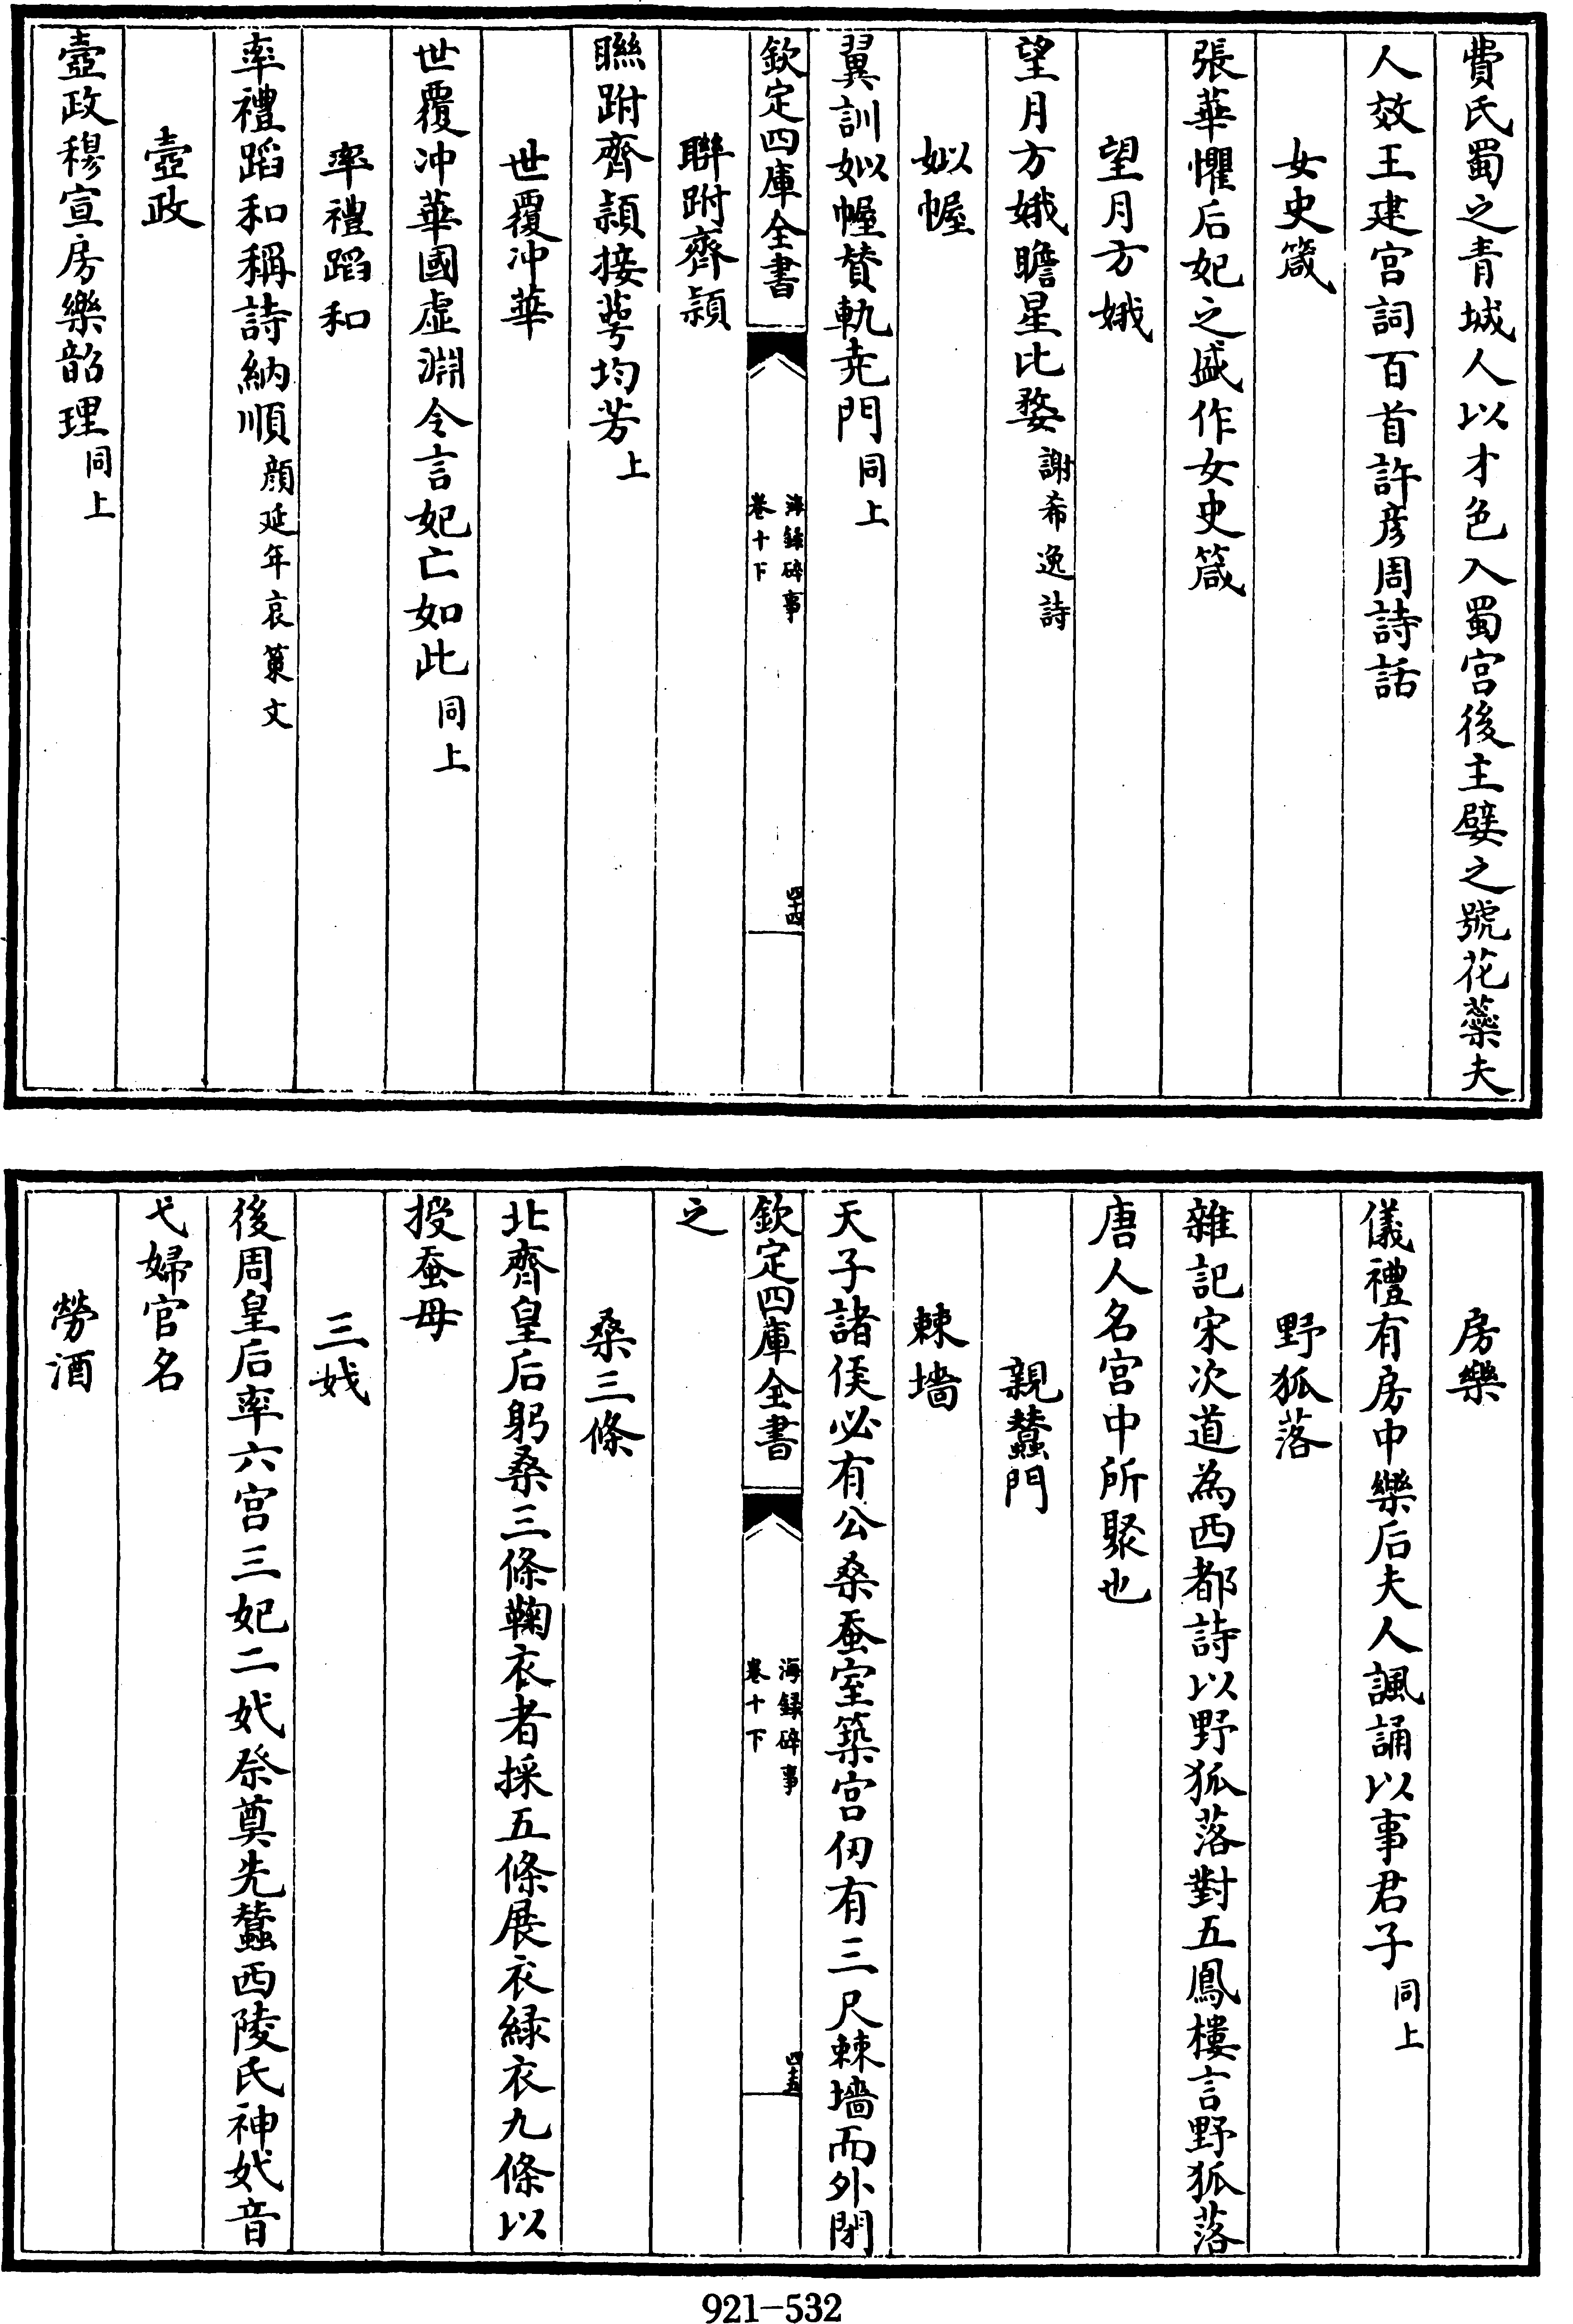 費氏蜀之青城人以才色入蜀宫後主嬖之號花蘂夫
人效王建宫詞百首許彦周詩話
女史箴
張華懼后妃之盛作女史箴
望月方娥
望月方娥瞻星比婺謝希逸詩
姒幄
翼訓姒幄賛軌堯門同上
欽定四庫全書
海録碎事
卷十下
四十四
聯跗齊穎
聮跗齊穎接萼均芳上
世覆冲華
世覆冲華國虚淵令言妃亡如此同上
率禮蹈和
率禮蹈和稱詩納順顔延年哀策文
壼政
壼政穆宣房樂韶理同上
房樂
儀禮有房中樂后夫人諷誦以事君子同上
野狐落
雜記宋次道為西都詩以野狐落對五鳳樓言野狐落
唐人名宫中所聚也
親蠶門
棘墻
天子諸侯必有公桑蚕室築宫仞有三尺棘墻而外閉
欽定四庫全書
海録碎事
卷十下
四十五
之
桑三條
北齊皇后躬桑三條鞠衣者採五條展衣緑衣九條以
授蚕母
三妭
後周皇后率六宫三妃二妭祭奠先蠶西陵氏神妭音
弋婦官名
勞酒
921-532